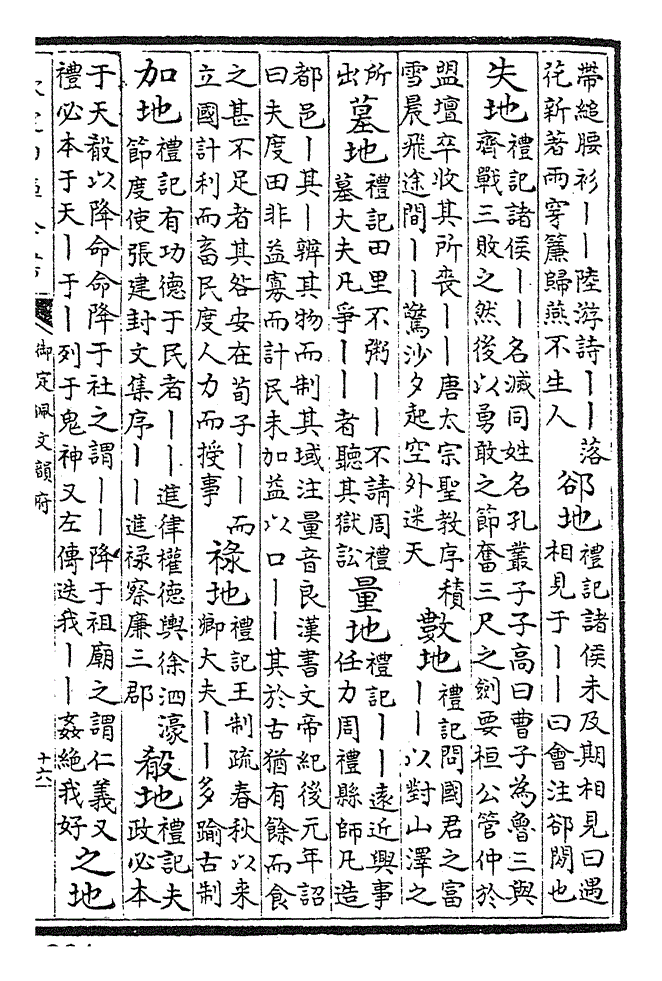 帶縋腰衫丨丨陸游詩丨丨落
花新著雨穿簾歸燕不生人
郤地
禮記諸侯未及期相見曰遇
相見于丨丨曰會注郤閒也
失地
禮記諸侯丨丨名滅同姓名孔叢子子高曰曹子為魯三與
齊戰三敗之然後以勇敢之節奮三尺之劍要桓公管仲於
盟壇卒收其所喪丨丨唐太宗聖教序積
雪晨飛途間丨丨驚沙夕起空外迷天
數地
禮記問國君之富
丨丨以對山澤之
所
出
墓地
禮記田里不粥丨丨不請周禮
墓大夫凡爭丨丨者聽其獄訟
量地
禮記丨丨遠近興事
任力周禮縣師凡造
都邑丨其丨辨其物而制其域注量音良漢書文帝紀後元年詔
曰夫度田非益寡而計民未加益以口丨丨其於古猶有餘而食
之甚不足者其咎安在荀子丨丨而
立國計利而畜民度人力而授事
祿地
禮記王制疏春秋以来
卿大夫丨丨多踰古制
加地
禮記有功德于民者丨丨進律權德輿徐泗濠
節度使張建封文集序丨丨進祿察廉三郡
殽地
禮記夫
政必本
于天殽以降命命降于社之謂丨丨降于祖廟之謂仁義又
禮必本于天丨于丨列于鬼神又左傳迭我丨丨姦絶我好
之地
御定佩文韻府
十六